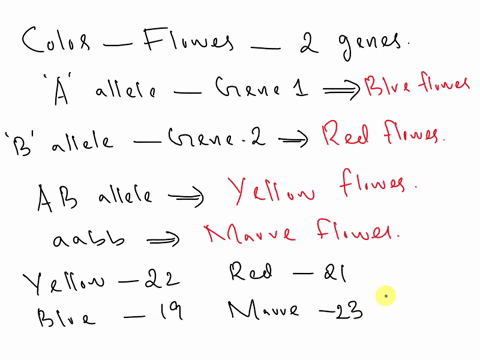 Color — Flower — 2 genes.
'A' allele — Gene 1 ⟹ Blue flower
'B' allele — Gene. 2 ⟹ Red flower.
AB allele ⟹ Yellow flower.
aabb ⟹ Mauve flower.
Yellow — 22 Red — 21
Blue — 19 Mauve — 23